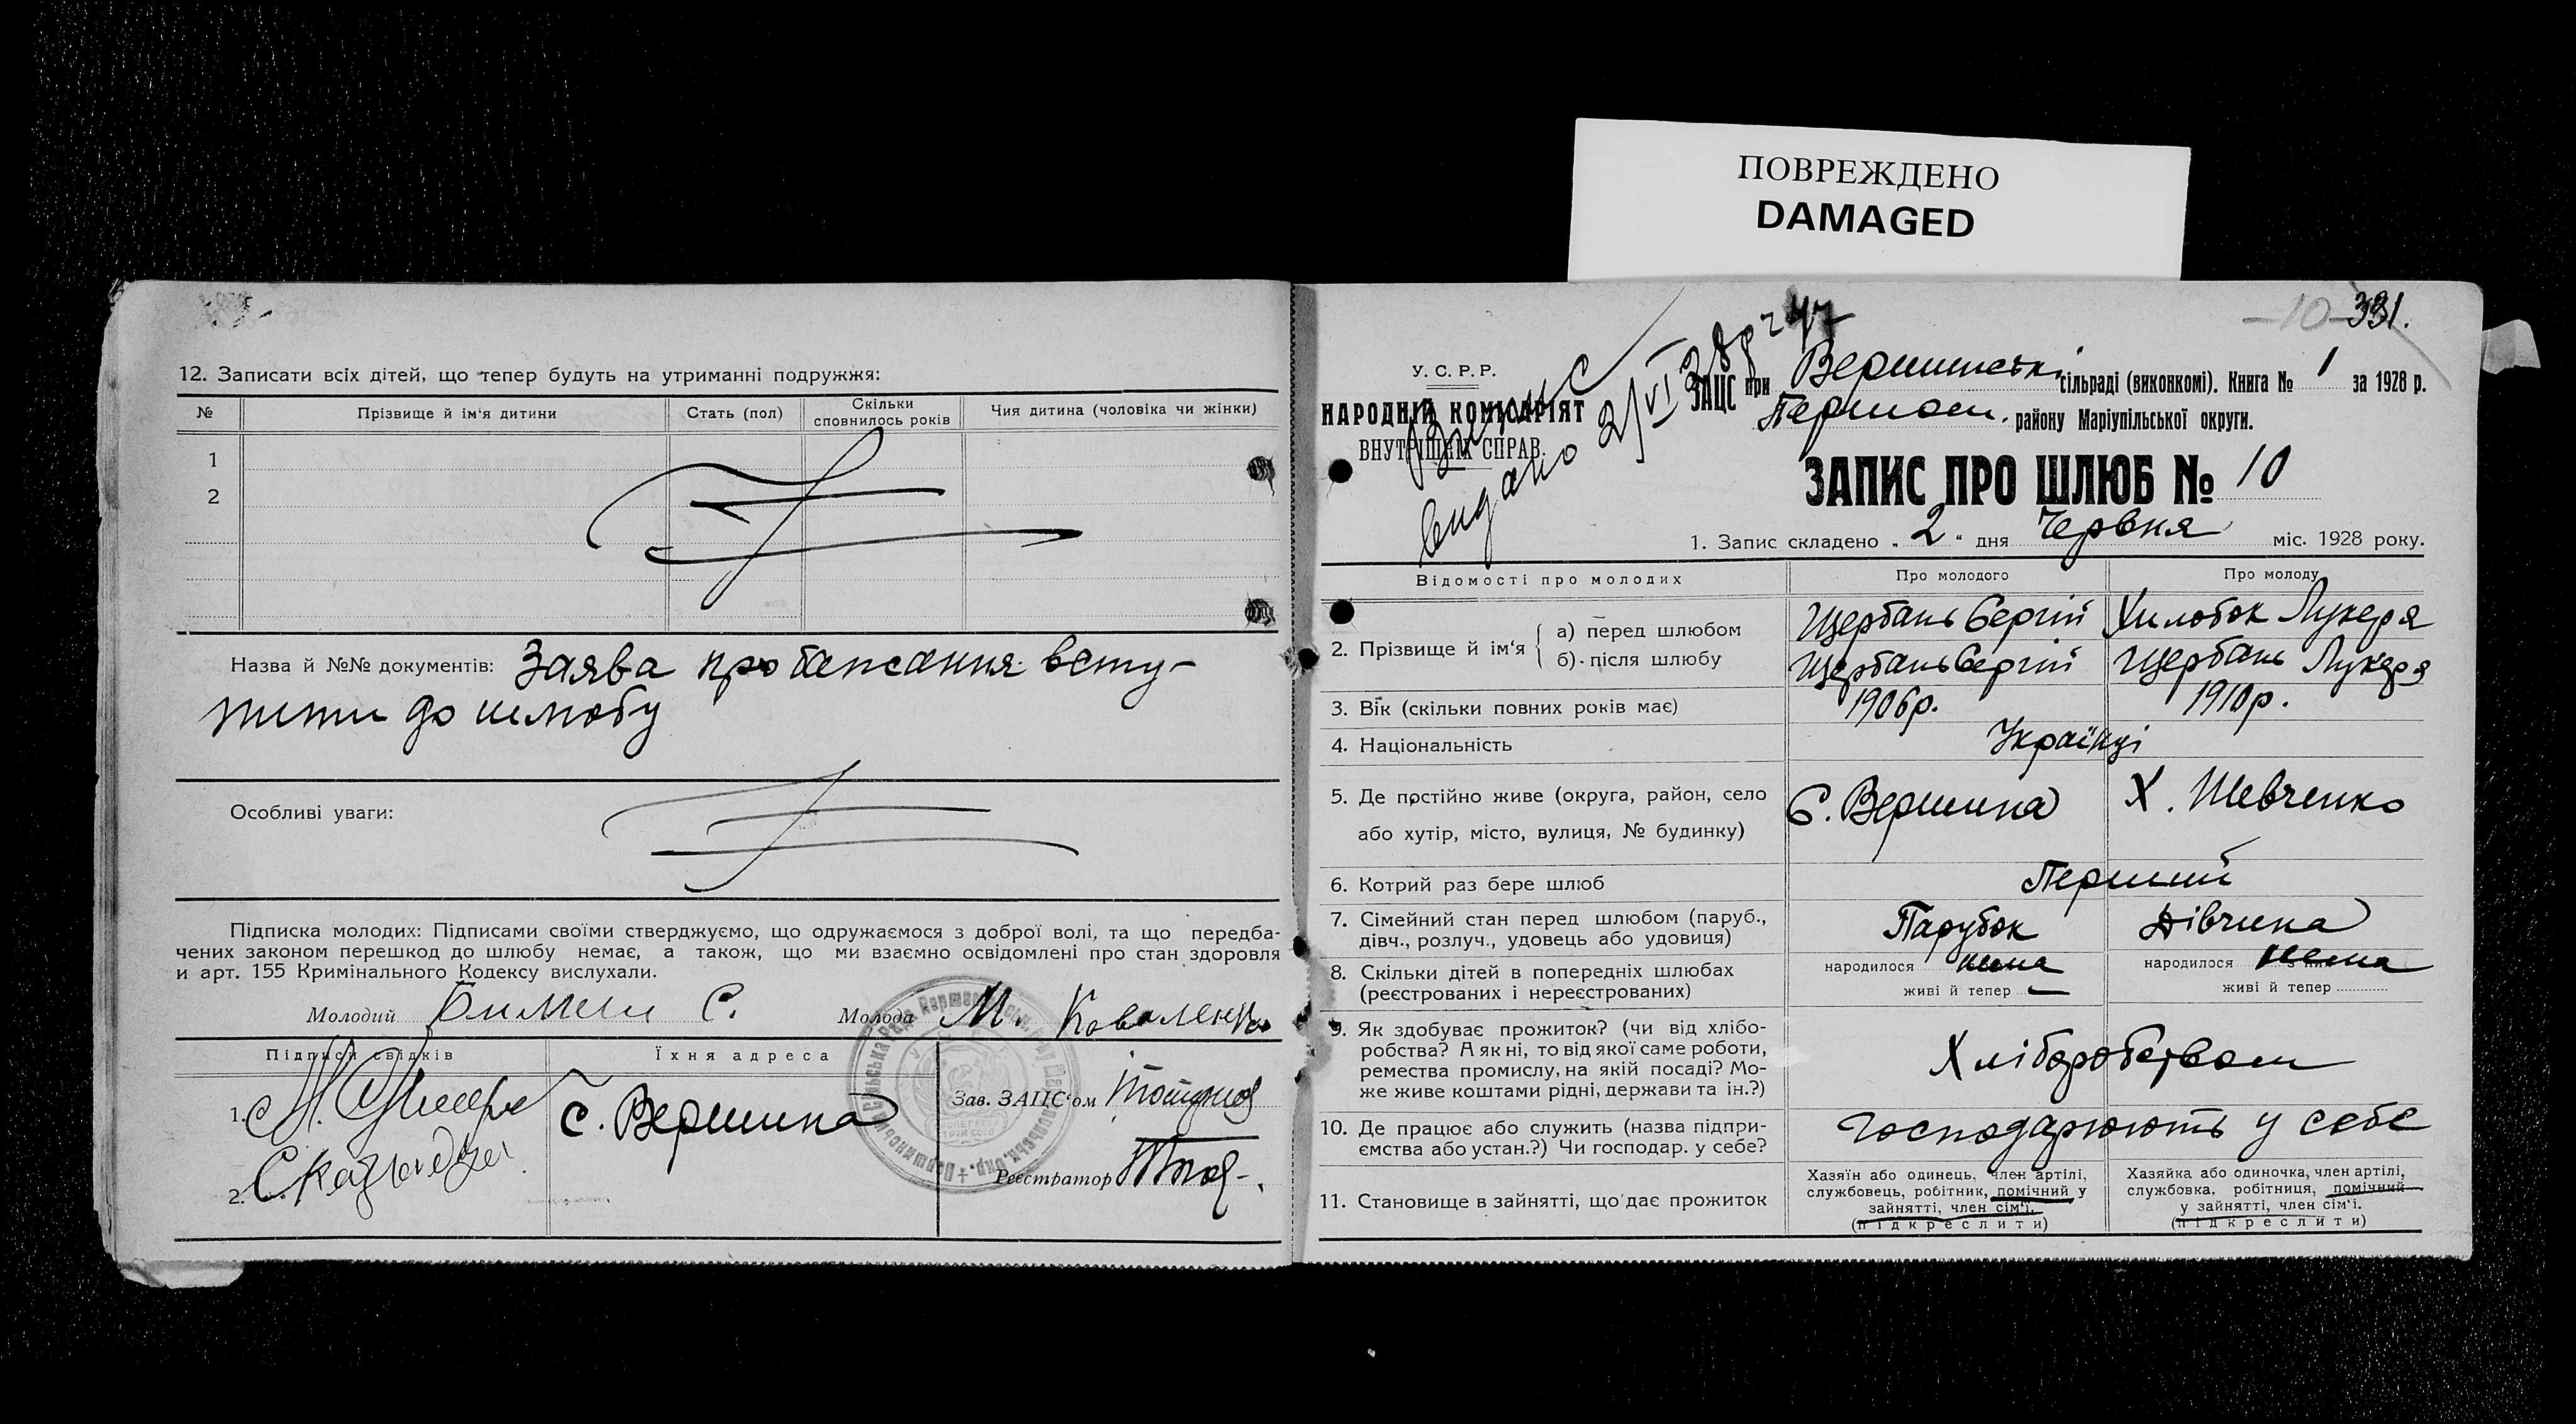 ПОВРЕЖДЕНО
DAMAGED
12. Записати всіх дітей, що тепер будуть на утриманні подружжя:
№ Прізвище й ім'я дитини Стать (пол) Скільки сповнилось років Чия дитина (чоловіка чи жінки)
1
2
Назва й №№ документів: Заява про бажання всту-
пити до шлюбу
Особливі уваги:
Підписка молодих: Підписами своїми стверджуємо, що одружаємося з доброї волі, та що передба-
чених законом перешкод до шлюбу немає, а також, що ми взаємно освідомлені про стан здоровля
и арт. 155 Кримінального Кодексу вислухали.
Молодий С. Молода М. Коваленко
Підписи свідків Їхня адреса
1. С. Вершина Зав. ЗАЦС'ом
2. Реєстратор
-10- 331.
У. С. Р. Р.
НАРОДНІЙ КОМІСАРІЯТ
ВНУТРІШНІХ СПРАВ.
видано 2/VI 28р
ЗАЦС при Вершинські сільраді (виконкомі). Книга № 1 за 1928 р.
Першот. району Маріупільської округи.
ЗАПИС ПРО ШЛЮБ № 10
1. Запис складено „ 2 “ дня Червня міс. 1928 року.
Відомості про молодих Про молодого Про молоду
2. Прізвище й ім'я
а) перед шлюбом Щербань Сергій Хилобок Лукеря
б) після шлюбу Щербань Сергій Щербань Лукеря
3. Вік (скільки повних років має) 1906р. 1910р.
4. Національність Українці
5. Де постійно живе (округа, район, село
або хутір, місто, вулиця, № будинку) С. Вершина Х. Шевченко
6. Котрий раз бере шлюб Перший
7. Сімейний стан перед шлюбом (паруб.,
дівч., розлуч., удовець або удовиця) Парубок Дівчина
8. Скільки дітей в попередніх шлюбах
(реєстрованих і нереєстрованих)
народилося нема народилося нема
живі й тепер живі й тепер
9. Як здобуває прожиток? (чи від хлібо-
робства? А як ні, то від якої саме роботи,
ремества промислу, на якій посаді? Мо-
же живе коштами рідні, держави та ін.?)
Хліборобством
10. Де працює або служить (назва підпри-
ємства або устан.?) Чи господар. у себе?
Господарюють у себе
11. Становище в зайнятті, що дає прожиток
Хазяїн або одинець, член артілі,
службовець, робітник, помічний у
зайнятті, член сім'ї.
(підкреслити)
Хазяйка або одиночка, член артілі,
службовка, робітниця, помічний
у зайнятті, член сім'ї.
(підкреслити)